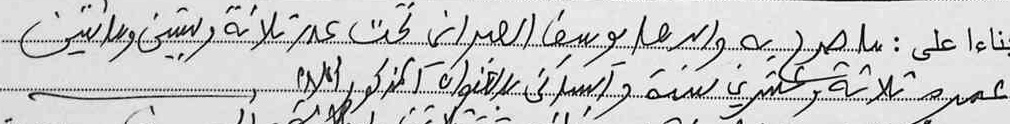 بناءا على : ما صرح به والدها يوسف العمراني تحت عدد ثلاثة وستين ومائتين
عمره ثلاثة وعشرين سنة والساكن بالعنوان المذكور أعلاه